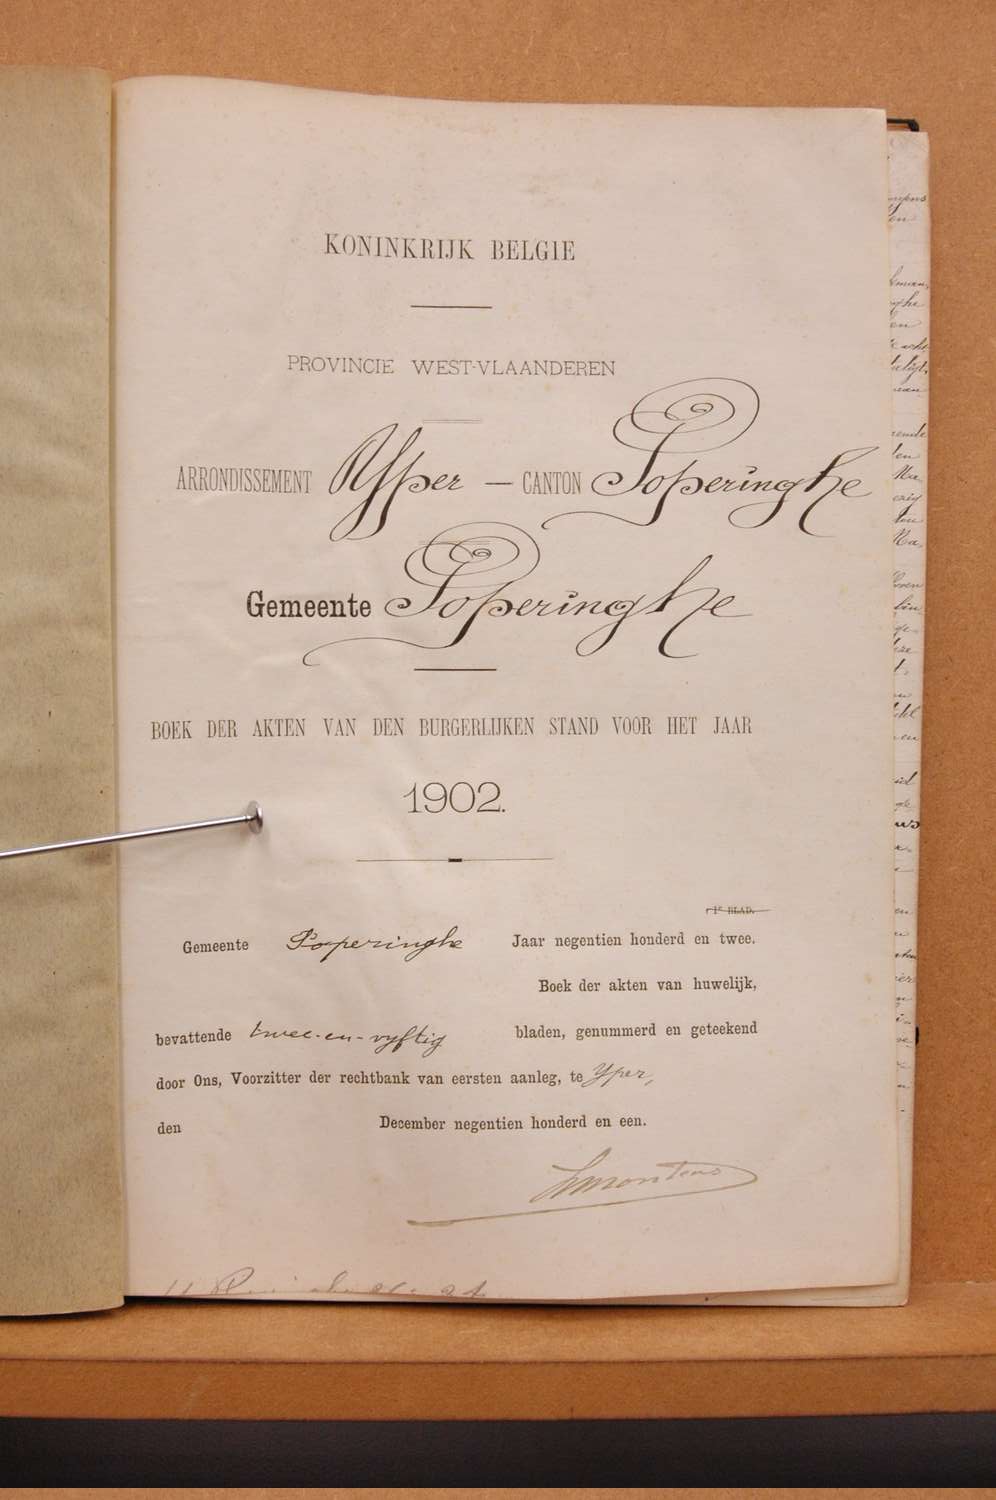 KONINKRIJK BELGIE
PROVINCIE WEST-VLAANDEREN
ARRONDISSEMENT Yper — CANTON Poperinghe
Gemeente Poperinghe
BOEK DER AKTEN VAN DEN BURGERLIJKEN STAND VOOR HET JAAR
1902.
1e BLAD.
Gemeente Poperinghe Jaar negentien honderd en twee.
Boek der akten van huwelijk,
bevattende twee-en-vyftig bladen, genummerd en geteekend
door Ons, Voorzitter der rechtbank van eersten aanleg, te Yper,
den December negentien honderd en een.